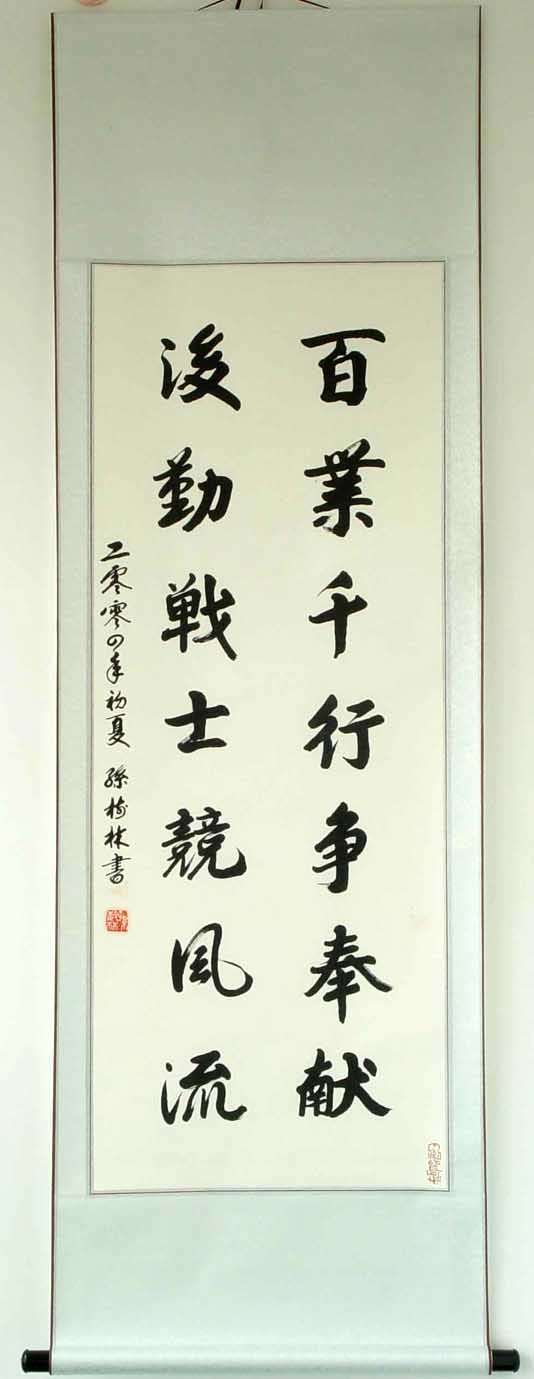 百業千行争奉献
後勤戦士競風流
二零零四年初夏 孫樹林書